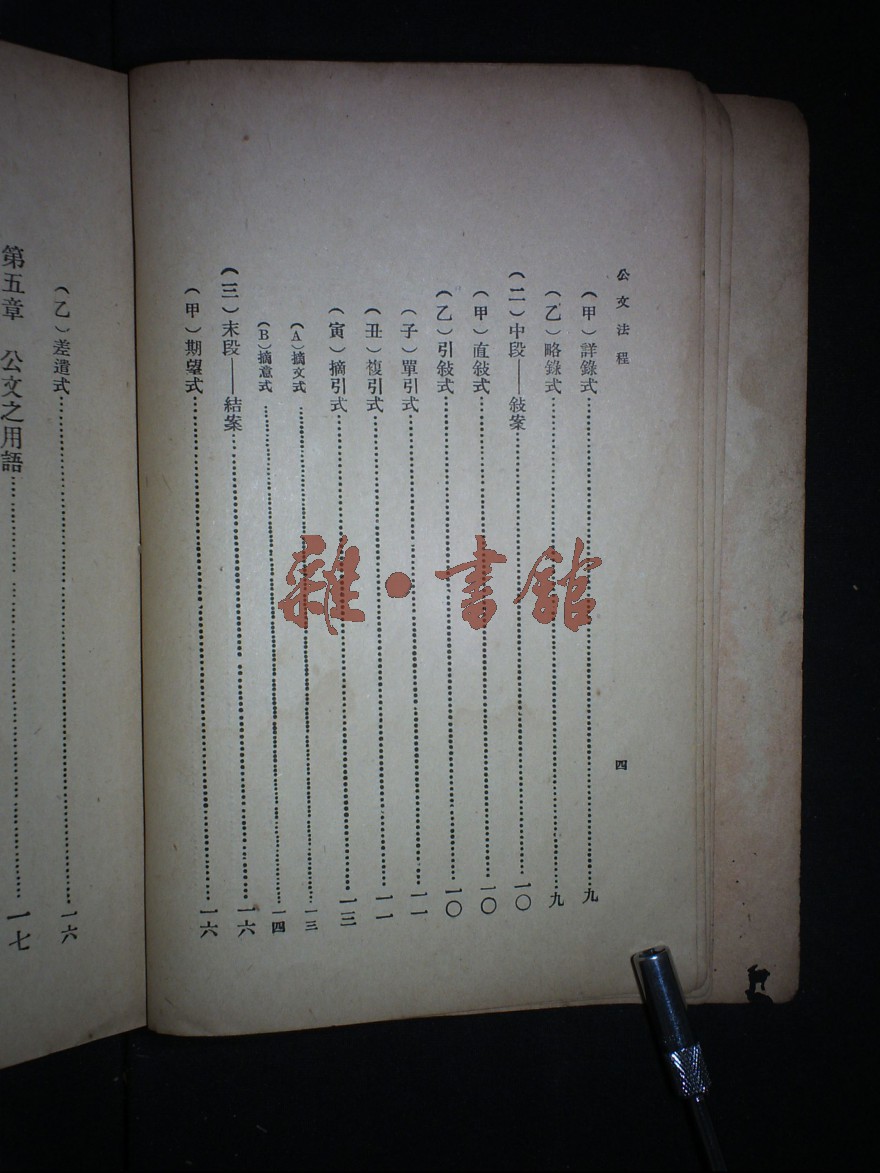 公文法程
四
（甲）詳錄式……九
（乙）略錄式……九
（二）中段——敍案……一〇
（甲）直敍式……一〇
（乙）引敍式……一〇
（子）單引式……一一
（丑）複引式……一一
（寅）摘引式……一三
（A）摘文式……一三
（B）摘意式……一四
（三）末段——結案……一六
（甲）期望式……一六
（乙）差遣式……一六
第五章　公文之用語……一七
雜·書館